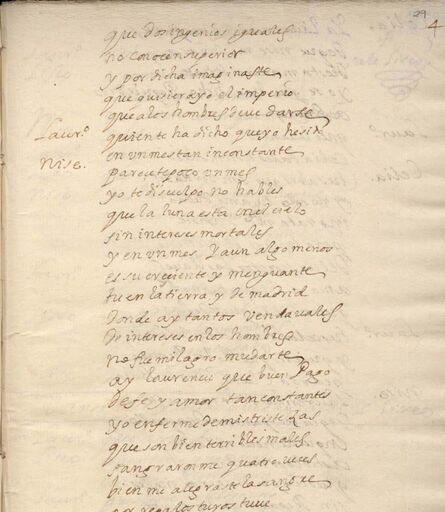 29
4
que dos ingenios iguales
no conocen superior
y por dicha imaginaste
que quisiera yo el imperio
que a los hombres deue darse
Laur.º quien te ha dicho que yo he sido
Nise. en un mes tan inconstante
parecete poco un mes
yo te disculpo no hables
que la luna esta en el cielo
sin intereses mortales
y en un mes y aun algo menos
es su creciente y menguante
tu en la tierra y de madrid
donde ay tantos vendauales
de intereses en los hombres
no fue milagro mudarte
ay laurencio que buen pago
de fe y amor tan constantes
yo enferme de mis tristezas
que son bien terribles males
sangraronme quatro veces
bien me alegraste la sangre
por regalos tuyos tuve